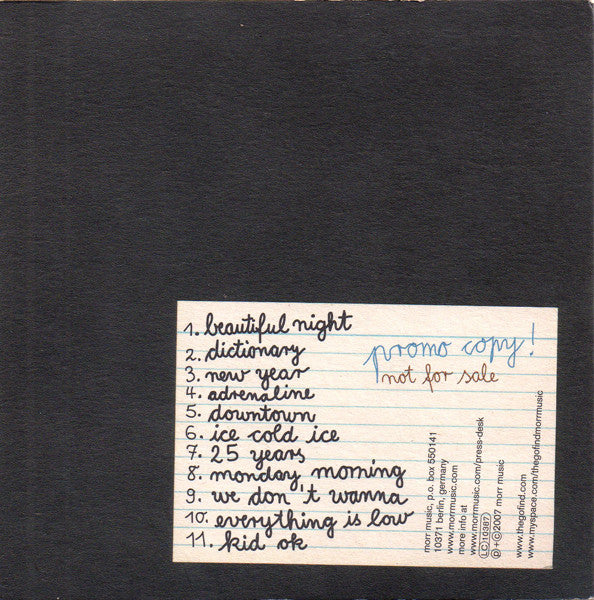 1. beautiful night
2. dictionary
3. new year
4. adrenaline
5. downtown
6. ice cold ice
7. 25 years
8. monday morning
9. we don't wanna
10. everything is low
11. kid ok
promo copy!
not for sale
morr music, p.o. box 550141
10371 berlin, germany
www.morrmusic.com
more info at
www.morrmusic.com/press-desk
LC 10387
℗+©2007 morr music
www.thegofind.com
www.myspace.com/thegofindmorrmusic